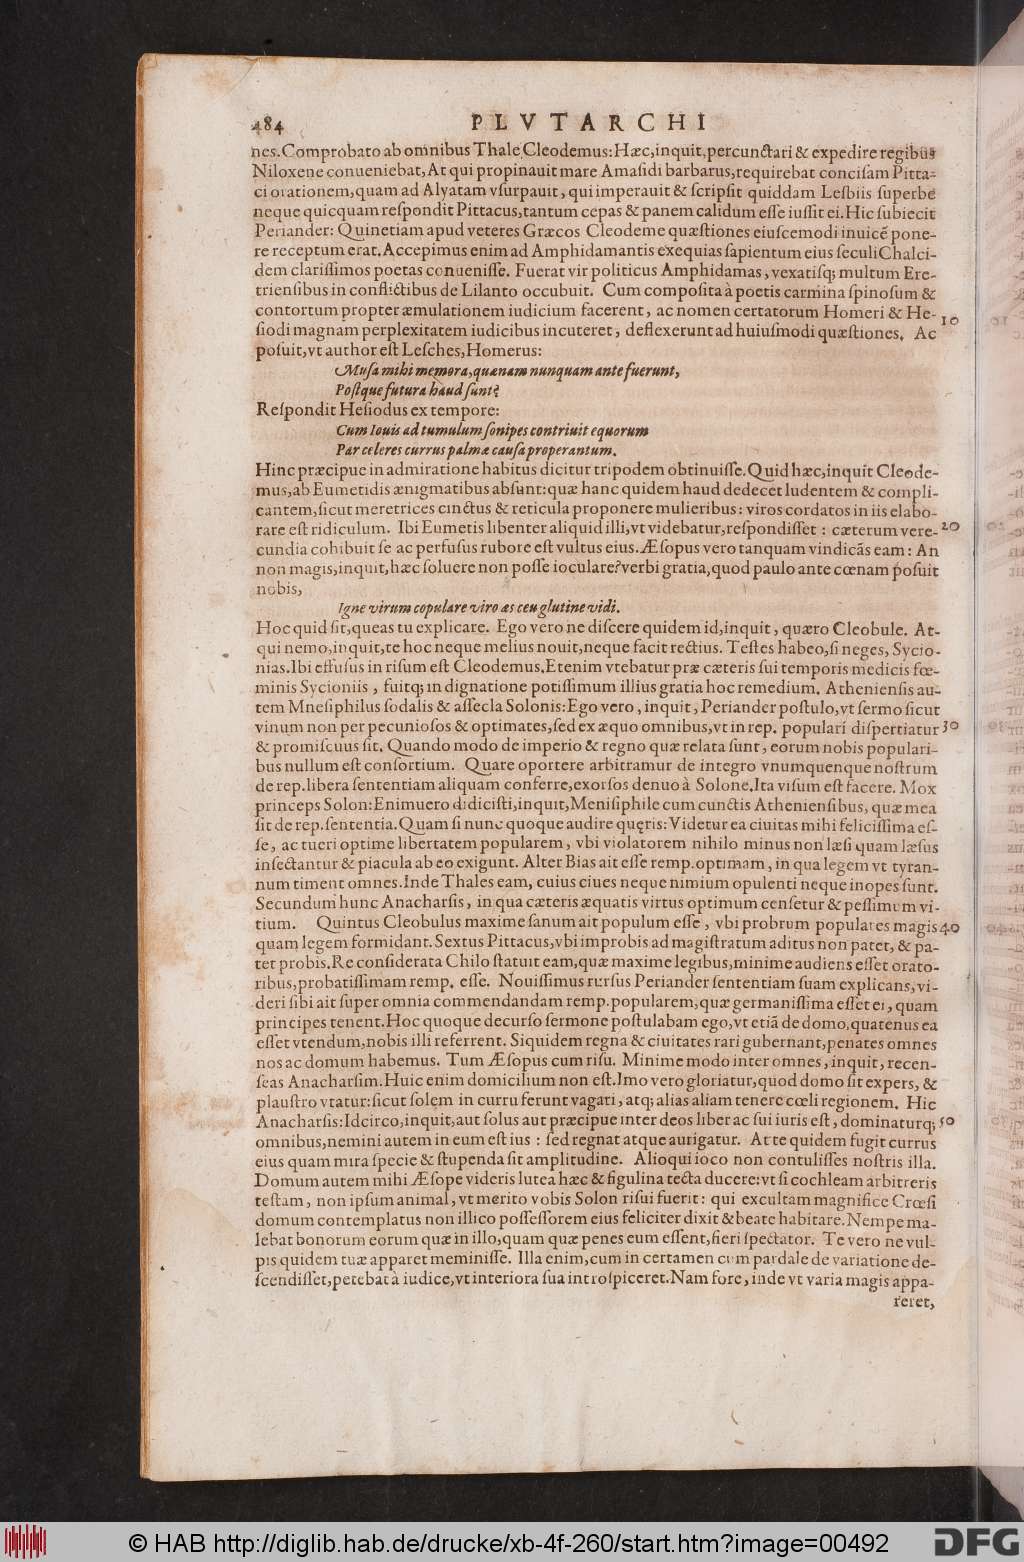 484 PLVTARCHI
nes. Comprobato ab omnibus Thale Cleodemus: Hæc, inquit, percunctari & expedire regibus
Niloxene conueniebat, At qui propinauit mare Amasidi barbarus, requirebat concisam Pitta-
ci orationem, quam ad Alyatam vsurpauit, qui imperauit & scripsit quiddam Lesbiis superbe
neque quicquam respondit Pittacus, tantum cepas & panem calidum esse iussit ei. Hic subiecit
Periander: Quinetiam apud veteres Græcos Cleodeme quæstiones eiuscemodi inuicē pone-
re receptum erat. Accepimus enim ad Amphidamantis exequias sapientum eius seculi Chalci-
dem clarissimos poetas conuenisse. Fuerat vir politicus Amphidamas, vexatisq; multum Ere-
triensibus in conflictibus de Lilanto occubuit. Cum composita à poetis carmina spinosum &
contortum propter æmulationem iudicium facerent, ac nomen certatorum Homeri & He-
siodi magnam perplexitatem iudicibus incuteret, deflexerunt ad huiusmodi quæstiones. Ac 10
posuit, vt author est Lesches, Homerus:
Musa mihi memora, quænam nunquam ante fuerunt,
Postque futura haud sunt?
Respondit Hesiodus ex tempore:
Cum Iouis ad tumulum sonipes contriuit equorum
Par celeres currus palmæ causa properantum.
Hinc præcipue in admiratione habitus dicitur tripodem obtinuisse. Quid hæc, inquit Cleode-
mus, ab Eumetidis ænigmatibus absunt: quæ hanc quidem haud dedecet ludentem & compli-
cantem, sicut meretrices cinctus & reticula proponere mulieribus: viros cordatos in iis elabo-
rare est ridiculum. Ibi Eumetis libenter aliquid illi, vt videbatur, respondisset: cæterum vere- 20
cundia cohibuit se ac perfusus rubore est vultus eius. Æsopus vero tanquam vindicãs eam: An
non magis, inquit, hæc soluere non posse ioculare? verbi gratia, quod paulo ante cœnam posuit
nobis,
Igne virum copulare viro æs ceu glutine vidi.
Hoc quid sit, queas tu explicare. Ego vero ne discere quidem id, inquit, quæro Cleobule. At-
qui nemo, inquit, te hoc neque melius nouit, neque facit rectius. Testes habeo, si neges, Sycio-
nias. Ibi effusus in risum est Cleodemus. Etenim vtebatur præ cæteris sui temporis medicis fœ-
minis Sycioniis, fuitq; in dignatione potissimum illius gratia hoc remedium. Atheniensis au-
tem Mnesiphilus sodalis & assecla Solonis: Ego vero, inquit, Periander postulo, vt sermo sicut
vinum non per pecuniosos & optimates, sed ex æquo omnibus, vt in rep. populari dispertiatur 30
& promiscuus sit. Quando modo de imperio & regno quæ relata sunt, eorum nobis populari-
bus nullum est consortium. Quare oportere arbitramur de integro vnumquenque nostrum
de rep. libera sententiam aliquam conferre, exorsos denuo à Solone. Ita visum est facere. Mox
princeps Solon: Enimuero didicisti, inquit, Menisiphile cum cunctis Atheniensibus, quæ mea
sit de rep. sententia. Quam si nunc quoque audire quęris: Videtur ea ciuitas mihi felicissima es-
se, ac tueri optime libertatem popularem, vbi violatorem nihilo minus non læsi quam læsus
insectantur & piacula ab eo exigunt. Alter Bias ait esse remp. optimam, in qua legem vt tyran-
num timent omnes. Inde Thales eam, cuius ciues neque nimium opulenti neque inopes sunt.
Secundum hunc Anacharsis, in qua cæteris æquatis virtus optimum censetur & pessimum vi-
tium. Quintus Cleobulus maxime sanum ait populum esse, vbi probrum populares magis 40
quam legem formidant. Sextus Pittacus, vbi improbis ad magistratum aditus non patet, & pa-
tet probis. Re considerata Chilo statuit eam, quæ maxime legibus, minime audiens esset orato-
ribus, probatissimam remp. esse. Nouissimus rursus Periander sententiam suam explicans, vi-
deri sibi ait super omnia commendandam remp. popularem, quæ germanissima esset ei, quam
principes tenent. Hoc quoque decurso sermone postulabam ego, vt etiã de domo, quatenus ea
esset vtendum, nobis illi referrent. Siquidem regna & ciuitates rari gubernant, penates omnes
nos ac domum habemus. Tum Æsopus cum risu. Minime modo inter omnes, inquit, recen-
seas Anacharsim. Huic enim domicilium non est. Imo vero gloriatur, quod domo sit expers, &
plaustro vtatur: sicut solem in curru ferunt vagari, atq; alias aliam tenere cœli regionem. Hic
Anacharsis: Idcirco, inquit, aut solus aut præcipue inter deos liber ac sui iuris est, dominaturq; 50
omnibus, nemini autem in eum est ius: sed regnat atque aurigatur. At te quidem fugit currus
eius quam mira specie & stupenda sit amplitudine. Alioqui ioco non contulisses nostris illa.
Domum autem mihi Æsope videris lutea hæc & figulina tecta ducere: vt si cochleam arbitreris
testam, non ipsum animal, vt merito vobis Solon risui fuerit: qui excultam magnifice Crœsi
domum contemplatus non illico possessorem eius feliciter dixit & beate habitare. Nempe ma-
lebat bonorum eorum quæ in illo, quam quæ penes eum essent, fieri spectator. Te vero ne vul-
pis quidem tuæ apparet meminisse. Illa enim, cum in certamen cum pardale de variatione de-
scendisset, petebat à iudice, vt interiora sua introspiceret. Nam fore, inde vt varia magis appa-
reret,
© HAB http://diglib.hab.de/drucke/xb-4f-260/start.htm?image=00492
DFG